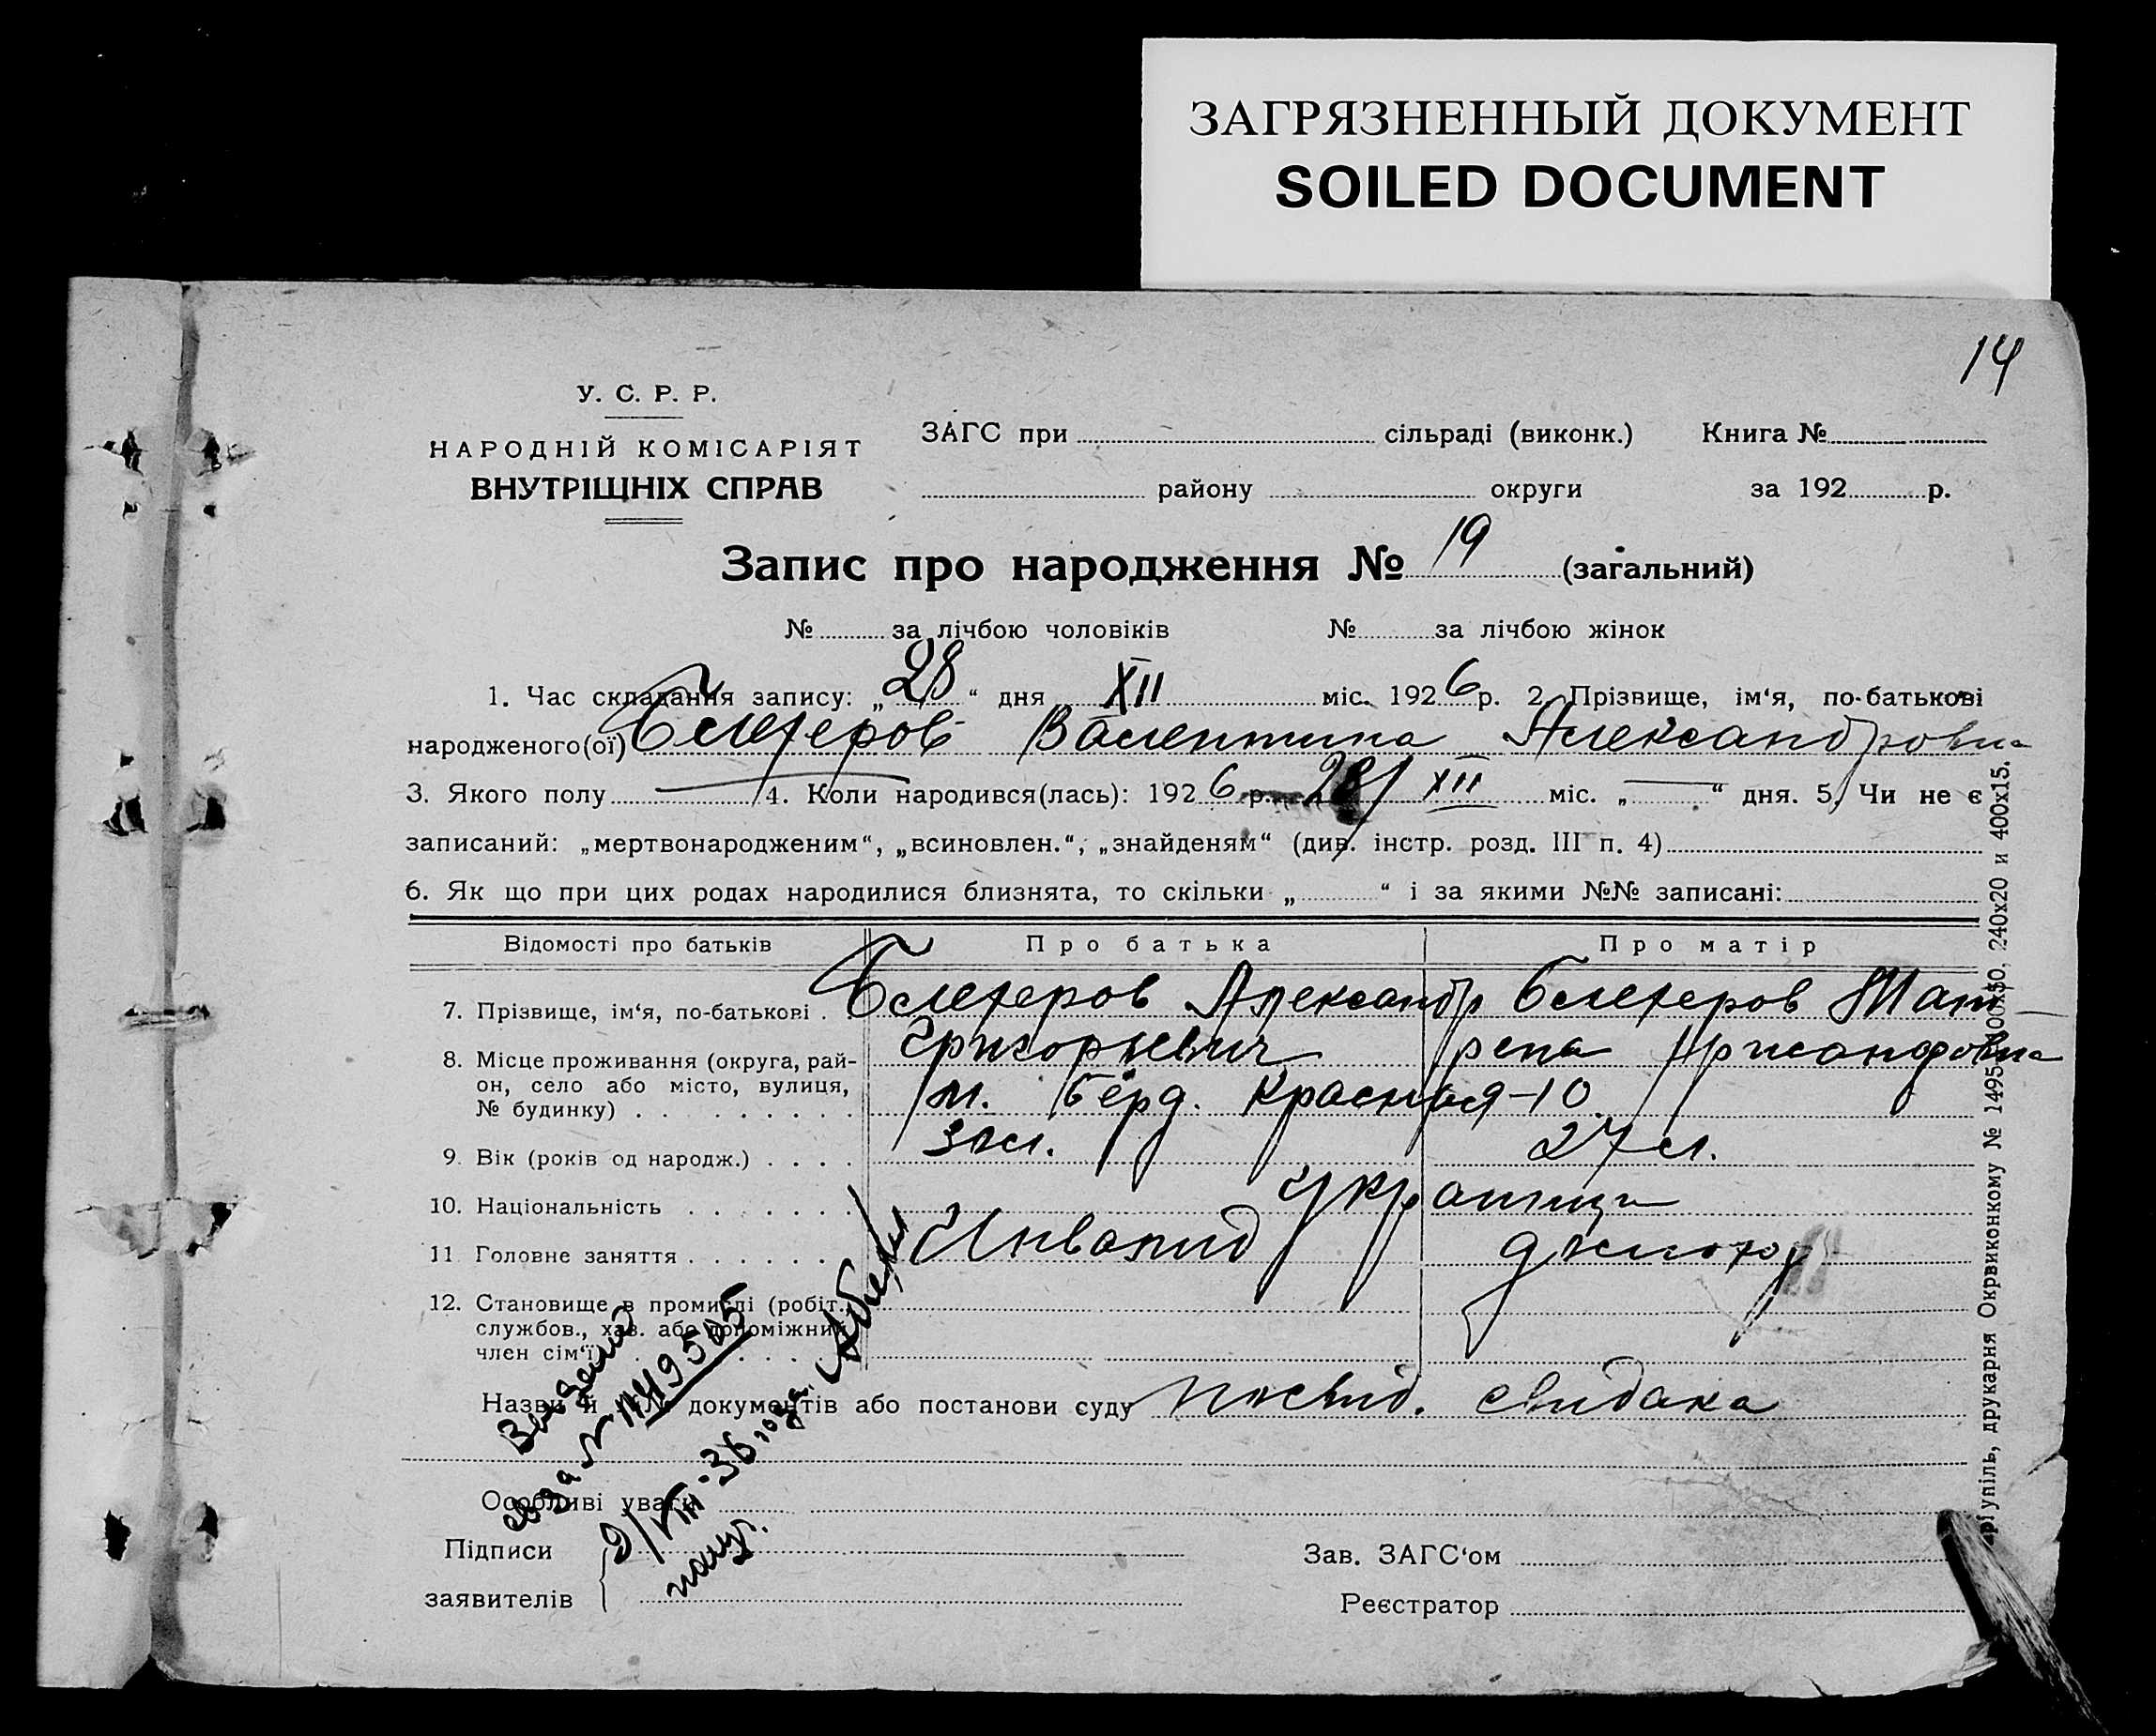 ЗАГРЯЗНЕННЫЙ ДОКУМЕНТ
SOILED DOCUMENT
14
У. С. Р. Р.
НАРОДНІЙ КОМІСАРІЯТ
ВНУТРІЩНІХ СПРАВ
ЗАГС при сільраді (виконк.) Книга №
району округи за 192 р.
Запис про народження № 19 (загальний)
№ за лічбою чоловіків № за лічбою жінок
1. Час складання запису: „28“ дня XII міс. 1926 р. 2. Прізвище, ім‘я, по-батькові
народженого(ої) Валентина Александровна
3. Якого полу — 4. Коли народився(лась): 1926 р. 28/XII міс. „—“ дня. 5. Чи не є
записаний: „мертвонародженим“, „всиновлен.“, „знайденям“ (див. інстр. розд. III п. 4)
6. Як що при цих родах народилися близнята, то скільки „ “ і за якими №№ записані:
Відомості про батьків Про батька Про матір
7. Прізвище, ім‘я, по-батькові . Александр
Григорьевич
8. Місце проживання (округа, рай-
он, село або місто, вулиця,
№ будинку) . . . . . . . . . м. Берд. Красная-10
9. Вік (років од народж.) . . . . 27 л.
10. Національність . . . . . . .
11 Головне заняття . . . . . . Инвалид
12. Становище в промислі (робіт.,
службов., хаз. або допоміжний
член сім‘ї)
Назви й №№ документів або постанови суду посвід. свидака
Особливі уваги
Підписи
заявителів
Зав. ЗАГС‘ом
Реєстратор
за №
VIII-36 года.
пашп.
упіль, друкарня Окрвиконкому № 1495-100х50, 240х20 и 400х15.